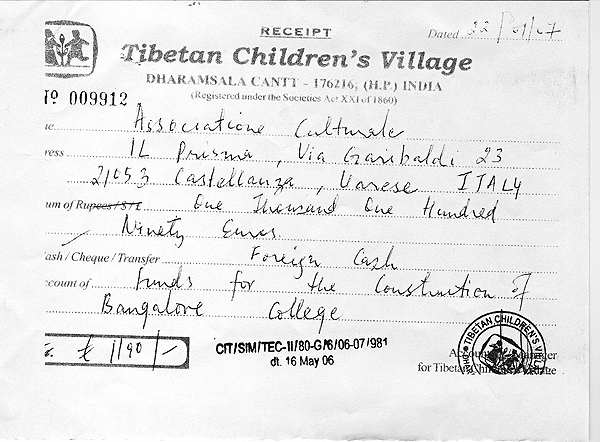 RECEIPT
Dated 22/01/07
Tibetan Children's Village
DHARAMSALA CANTT - 176216, (H.P.) INDIA
(Registered under the Societies Act XXI of 1860)
№ 009912
Associatione Culturale
ress IL Prisma, Via Garibaldi 23
21053 Castellanza, Varese ITALY
um of Rupees/S/£ One Thousand One Hundred
Ninety Euros.
ash / Cheque / Transfer Foreign Cash
ccount of Funds for the Construction of
Bangalore College
1190/-
CIT/SIM/TEC-II/80-G/6/06-07/981
dt. 16 May 06
TIBETAN CHILDREN'S
for Tibetan Children's Village